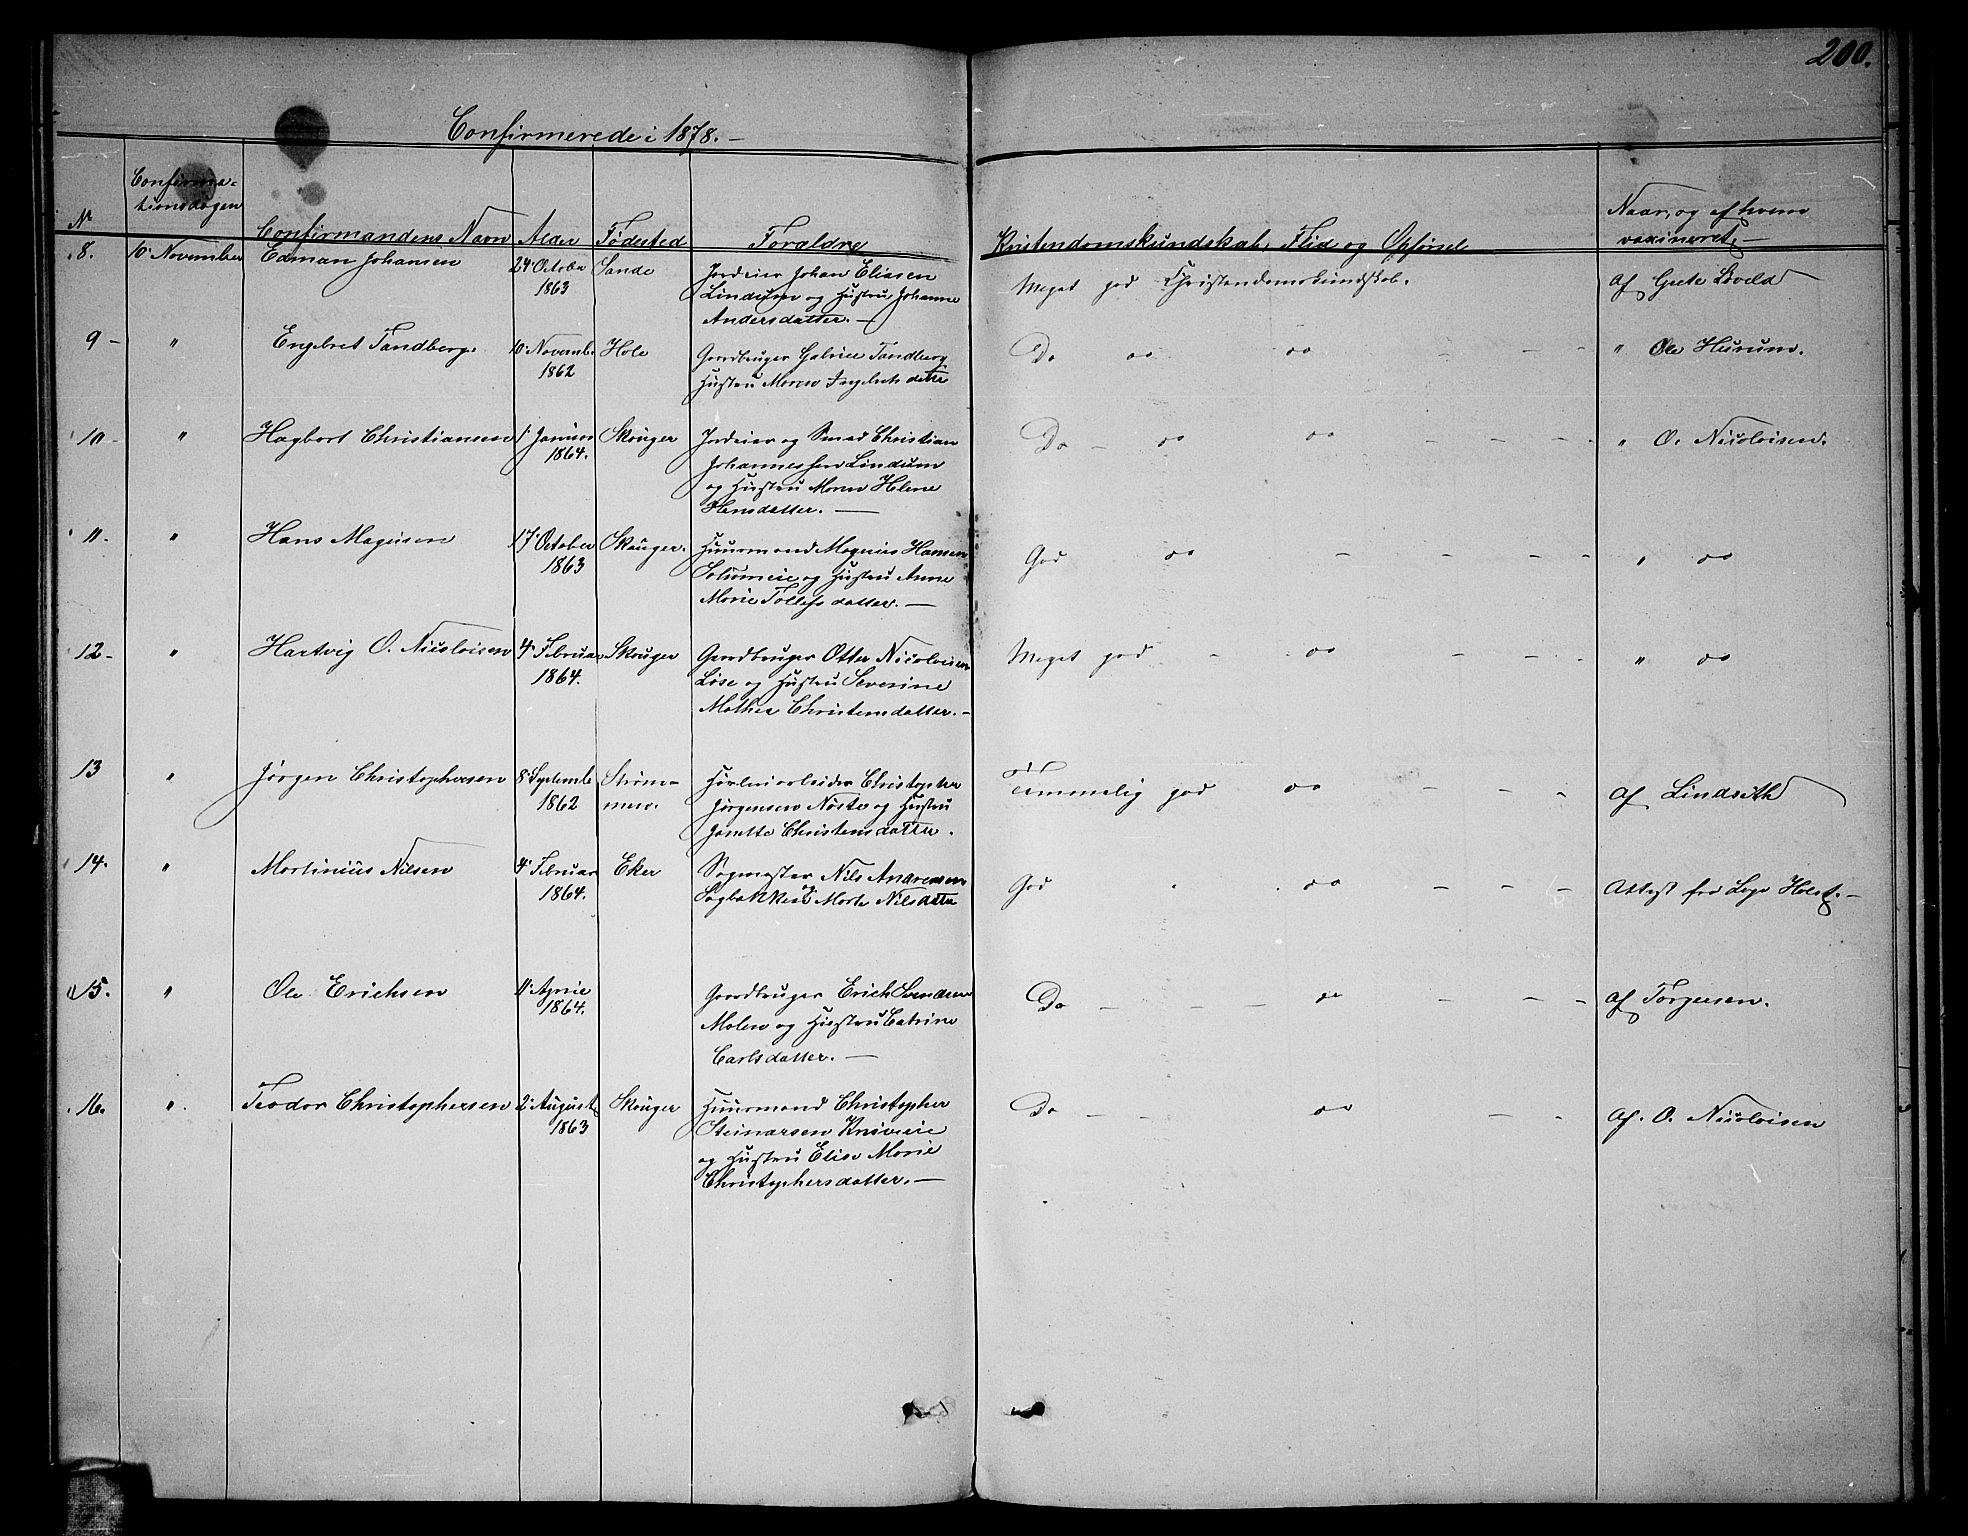 200.
Confirmerede i 1878. —
Nr
Confirma-
tionsdagen
Confirmandens Navn
Alder
Fødested
Foraldre
Kristendomskundskab, Flid og Opførsel
Naar, og af hvem
vaxineret, —
8.
10 November
Edman Johansen
24 Octobr
1863
Sande
Jordeier Johan Eliasen
Lindum og Hustru Johanne
Andersdatter. —
Meget god Christendomskundskab.
af Grete Løveld
9 -
"
Engebret Tandberg.
10 Novembr
1862
Hole
Gaardbruger Gabriel Tandberg
Hustru Maren Ingebretsdatter
Do do do - - -
" Ole Hurum.
10 -
"
Hagbart Christiansen
1 Januar
1864.
Skouger
Jordeier og Smed Christian
Johannessen Lindum
og Hustru Maren Helene
Hansdatter. —
Do - do do - - -
" O. Nicolaisen.
11.
"
Hans Magnusen
17 October
1863
Skouger.
Huusmand Magnus Hansen
Solumeie og Hustru Anne
Marie Tollefsdatter. —
God do - - -
" do
12 -
"
Hartvig O. Nicolaisen
4 Februar
1864.
Skouger
Gaardbruger Otter Nicolaisen
Løse og Hustru Severine
Mathea Christensdatter. -
Meget god - do - - -
" do
13
"
Jørgen Christophersen
8 Septembr
1862
Strøm-
men.
Høvleriarbeider Christopher
Jørgensen Nøste og Hustru
Janette Christensdatter.
Temmelig god do - - -
af Lindseth
14.
"
Martinius Nilsen
4 Februar
1864.
Eker
Sagmester Nils Andresen
Sagbakken og Marte Nilsdatter
God do - - -
Attest fra Læge Holst. -
15.
"
Ole Erichsen
11 April
1864.
Gaardbruger Erich Svendsen
Malen og Hustru Catrine
Carlsdatter. —
Do - - - do - - -
af Torgersen.
16.
"
Teodor Christophersen
2 August
1863
Skouger
Huusmand Christopher
Steinarsen Kniveie
og Hustru Elise Marie
Christophersdatter. —
Do - - do - -
af. O. Nicolaisen